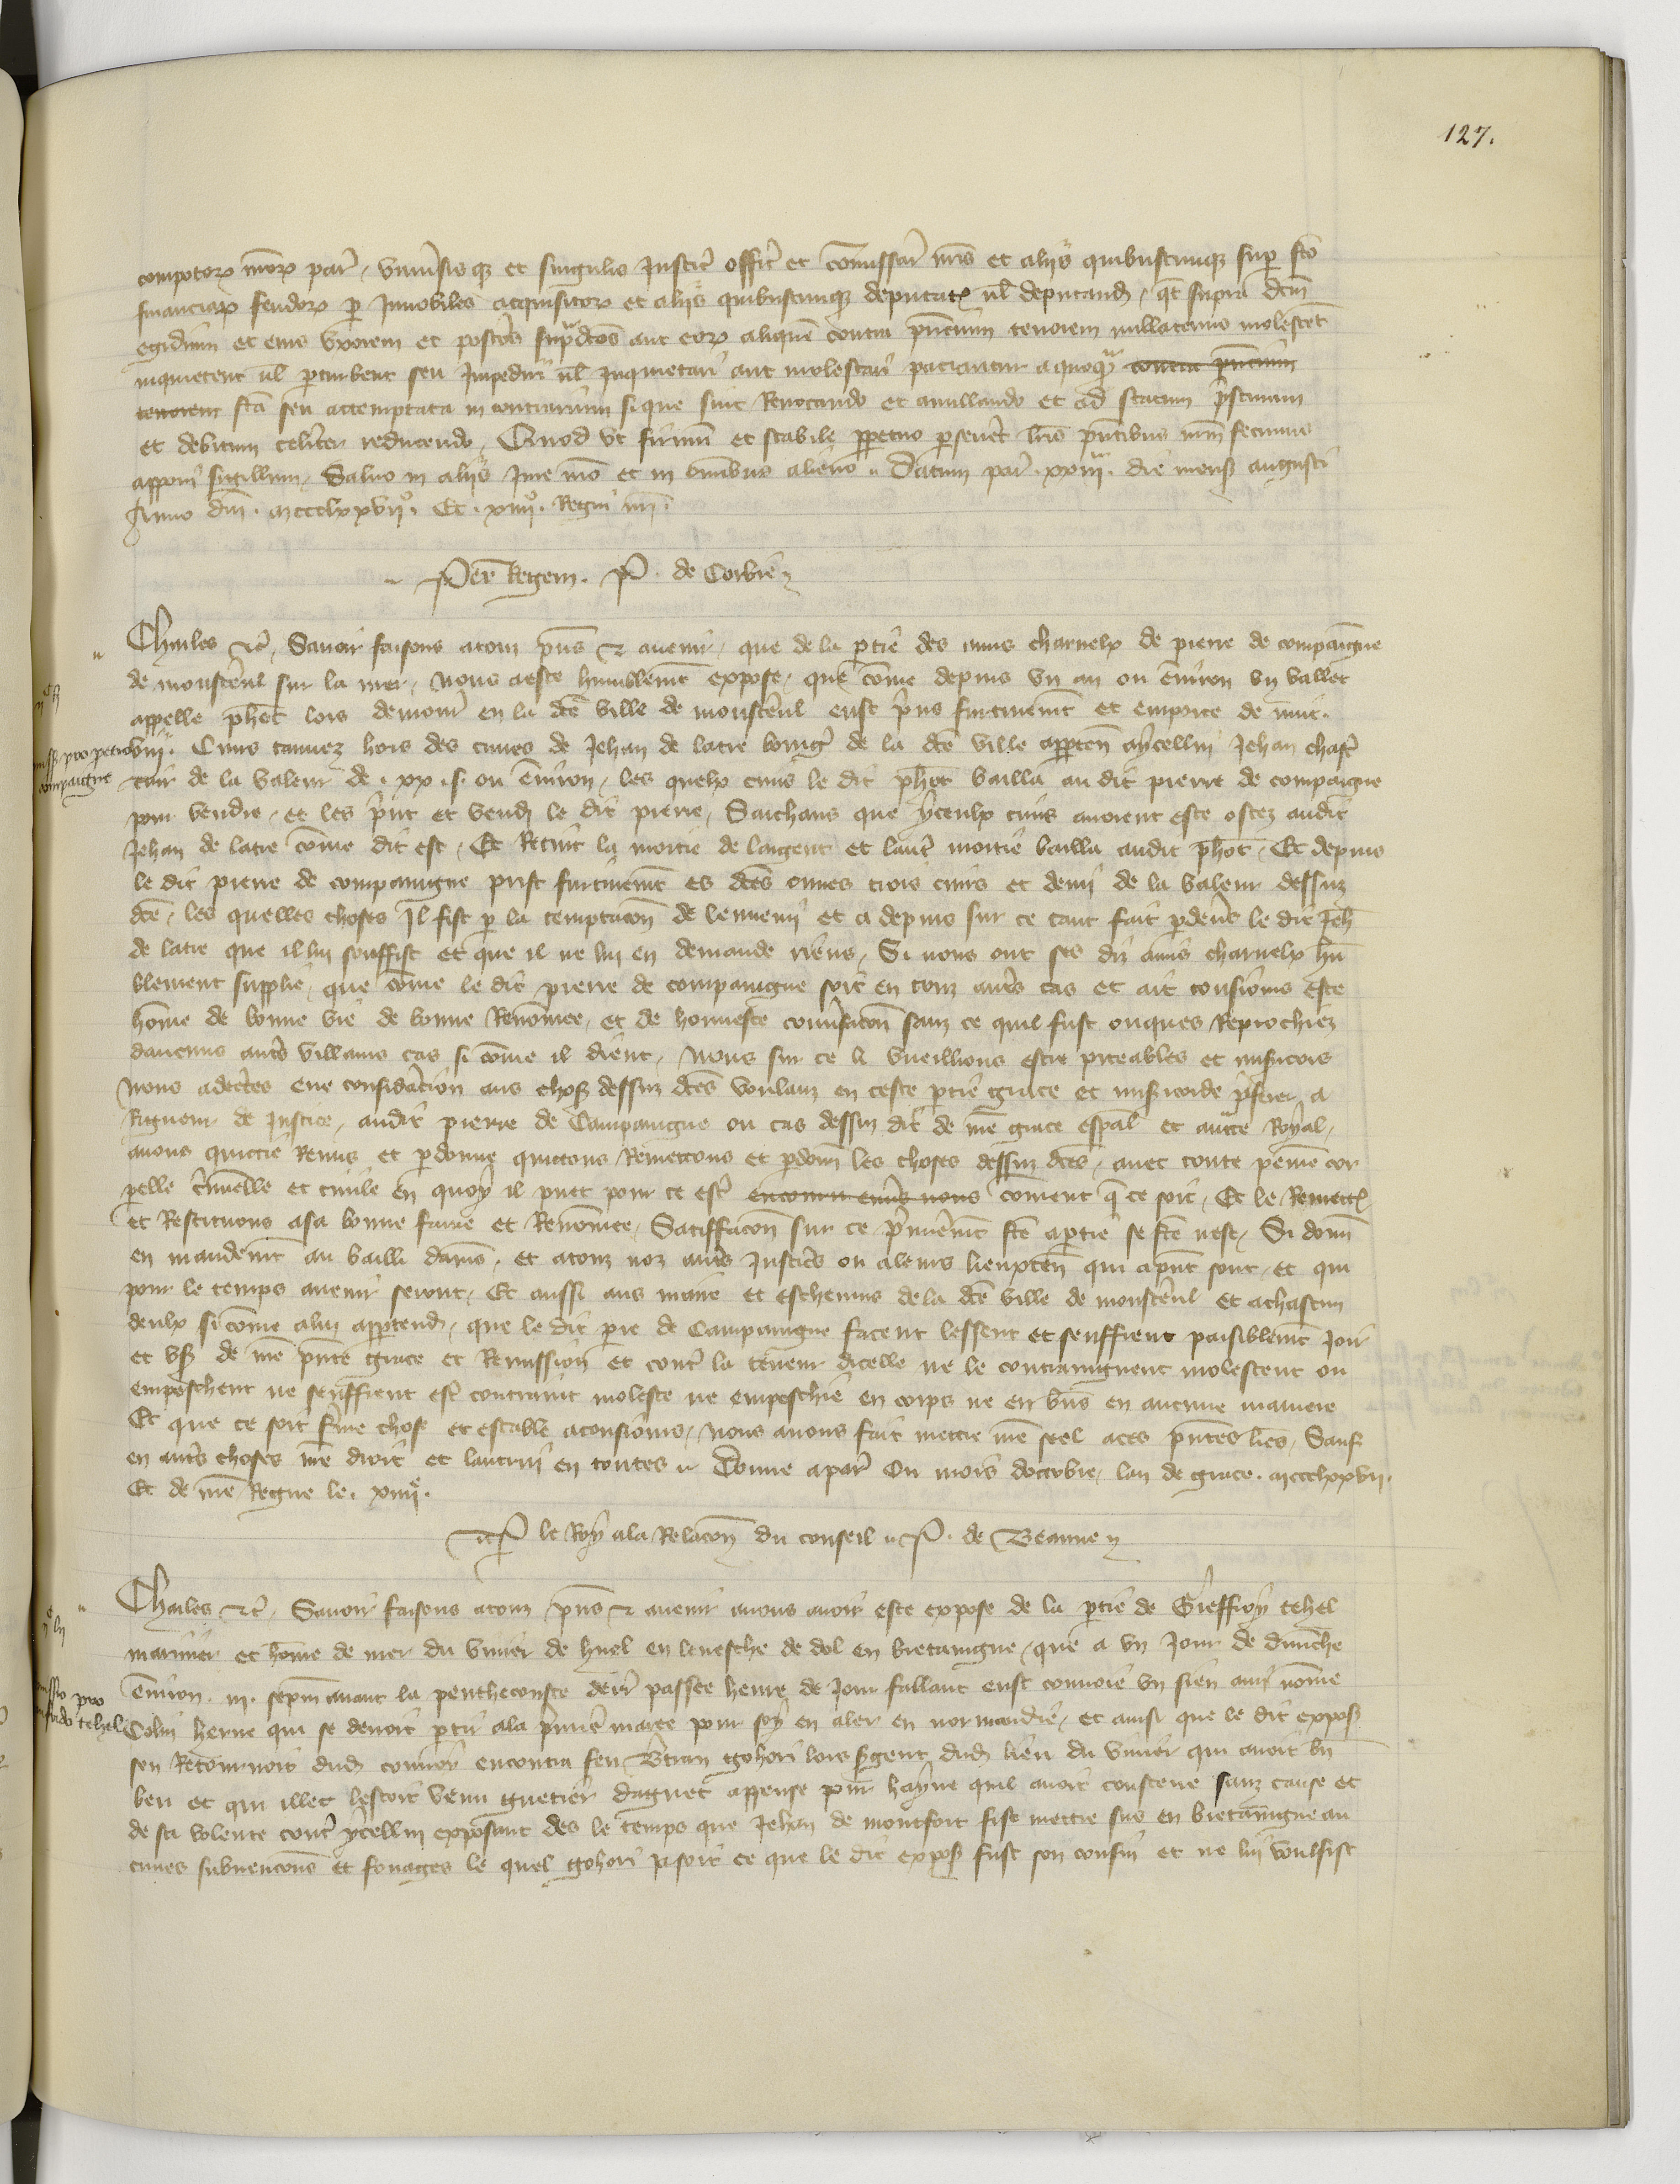 127.
compotorꝝ nr̄orꝝ par̄ / vniu̾sis qꝫ et singulis Justic̾ offic̾ et cōmissar̾ nr̄is et alijs quibuscumqꝫ sup̱ fc̄o
financiarꝝ feudorꝝ p̱ Innobiles acquisitorꝝ et alijs quibuscumqꝫ deputatꝭ ul̄ deputand / qt̄ supra dcm̄
egidium et eius vxorem et post̾os sup̱dc̄os aut eorꝝ aliquē contra pn̄cium tenorem nullatenus molestēt
inquietent ul̄ p̱turbent seu Impediri ul̄ Inquietari aut molestari paciantur a quoqᷓ contra pn̄cium
tenorem fc̄a seu attemptata in contrarium si que sint Reuocando et anullando et ad statum pͥstinum
et debitum celit̾er reducendo / Quod vt firmū et stabile pp̱etuo p̱seuet̾ lr̄is pn̄tibus nr̄m fecimus
apponi sigillum / Saluo in alijs Jure nr̄o et in om̄ibus alieno ·· Datum par̾ . xxiiiᷓ . die mensꝭ augusti
Anno dn̄i . mccclxxvijº. Et . xiiijº. Regni nr̄i .
·· Per Regem . P. de Corbie
Charles etc̾ / Sauoir faisons atouz pn̄s et auenir / que de la p̱tie des amis charnelx de pierre de compaingne
de monstereul sur la mer / nous aeste humblem̄t expose / que cōme depuis vn an ou enuiron vn vallet
appelle ph̄ot lors demour̾ en la dc̄e ville de monstereul eust pͥns furtiuem̄t et emporte de nuit
viij. Cuirs tannez hors des cuues de Jehan de latre bourg̾ de la dc̄e ville apparten̄ aycellui Jehan chasc̾
cuir de la valeur de . xx . s. ou enuiron / les quelx cuirs le dit ph̄ot bailla au dit pierre de compaigne
pour vendre / et les pͥnt et vend le dit pierre / Saichans que yceulx cuirs auoient este ostez audit
Jehan de latre cōme dit est / Et Retint la moitie de largent et laut̾ moitie bailla audit ph̄ot / Et depuis
le dit pierre de compaingne prist furtiuem̄t es dc̄es cuues trois cuirs et demi de la valeur dessuz
dc̄e / les quelles choses Il fist p̱ la temptacōn de lennemi et a depuis sur ce tant fait p̱deu̾s le dit Jeh̄
de latre que il lui souffist et que il ne lui en demande riens / Si nous ont ses diz amis charnelx hū
blement supplie / que cōme le dit pierre de compaingne soit en touz aut̾s cas et ait tousiours este
hōme de bonne vie de bonne Renōmee / et de honneste conu̾sacōn sanz ce quil fust onques Reprochiez
daucuns aut̾s villains cas si cōme il dient / nous sur ce li vueillions estre piteables et mis̾icors
nous adec̾tes eue consid̾acion aus chosꝭ dessuz dc̄es voulanz en ceste p̱tie grace et mis̾icorde pͥferer a
Rigueur de Justice / audit pierre de Campaingne ou cas dessuz dit de nr̄e grace esp̱al et auct̾te Royal /
auons quittie Remis et p̱donne quittons Remettons et p̱donn̄ les choses dessuz dc̄es / auec toute peine cor
pelle c̾minelle et ciuile en quoy il puet pour ce est̾ encouru enu̾s nous coment q̄ ce soit / Et le Remettꝭ
et Restituons asa bonne fame et Renōmee / Satiffacōn sur ce pͥmierem̄t fc̄e ap̱tie se fc̄e nest / Si donn̄
en mandem̄t au bailli damiēs / et atouz noz aut̾s Justic̾s ou aleurs lieuxten̄ qui apn̄t sont / et qui
pour le temps auenir seront / Et aussi aus maire et escheuins de la dc̄e ville de monstereul et achascun
deulx si cōme alui app̱tendꝭ / que le dit p̱re de Campaingne facent lessent et seuffrent paisiblem̄t Joir
et vsꝭ de nr̄e pn̄te grace et Remission et cont̾ la teneur dicelle ne le contraingnent molestent ou
empeschent ne seuffrent est̾ contraint moleste ne empeschie en corps ne en biēs en aucune maniere
Et que ce soit ferme chosꝭ et estable atousiours / nous auons fait mettre nr̄e seel aces pn̄tes lr̄es / Sauf
en aut̾s choses nr̄e droit et lautrui en toutes ·· Donne apar̾ Ou mois doctobre / lan de grace . mccclxxvij.
Et de nr̄e Regne le . xiiijᵉ.
P̱ le Roy ala Relacōn du conseil ·· P. de Beaune
Charles etc̾ / Sauoir faisons atouz pn̄s et auenir auons auoir este expose de la p̱tie de Gieffroy tehel
marinier et hōme de mer du viuier de huel en leuesche de dol en bretaingne / que a vn Jour de dimenche
enuiron . iii. sepm̄ auant la pentheconste derr̾ passee heure de Jour faillant eust conuoie vn sien ami nōme
Colin herue qui se deuoit p̱tir ala pͥmiere maree pour soy en aler en normandie / et ainsi que le dit exposꝭ
sen Retournoit dudꝭ conuoy encontra feu Bertran gohori lors s̾gent dudꝭ lieu du viuier qui auoit bn̄
beu et qui illec lestoit venu guetier daguet appense pour hayne quil auoit conceue sanz cause et
de sa volente cont̾ ycellui exposant des le temps que Jehan de montfort fist mettre sus en bretaingne au
cunes subuencōns et fouages le quel gohori p̱soit ce que le dit exposꝭ fust son cousin et ne lui voulsist